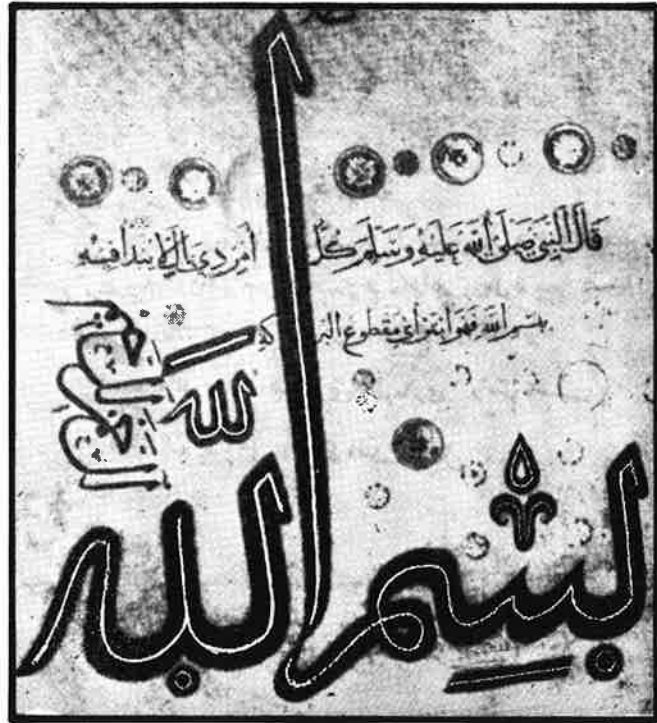 قال النبي صلى الله عليه وسلم كل امر ذي بال لا يبتدأ فيه
بسم الله فهو ابتر أي مقطوع البركة
الرحمن الرحيم
لله
بسم الله